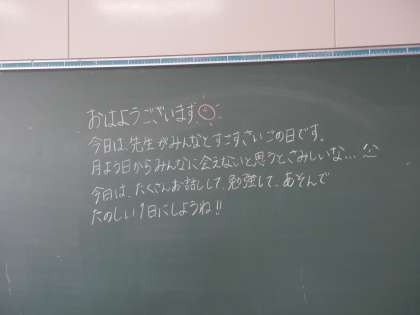 おはようございます
今日は、先生がみんなとすごすさいごの日です。
月よう日からみんなに会えないと思うとさみしいな…
今日は、たくさんお話しして、勉強して、あそんで
たのしい1日にしようね!!